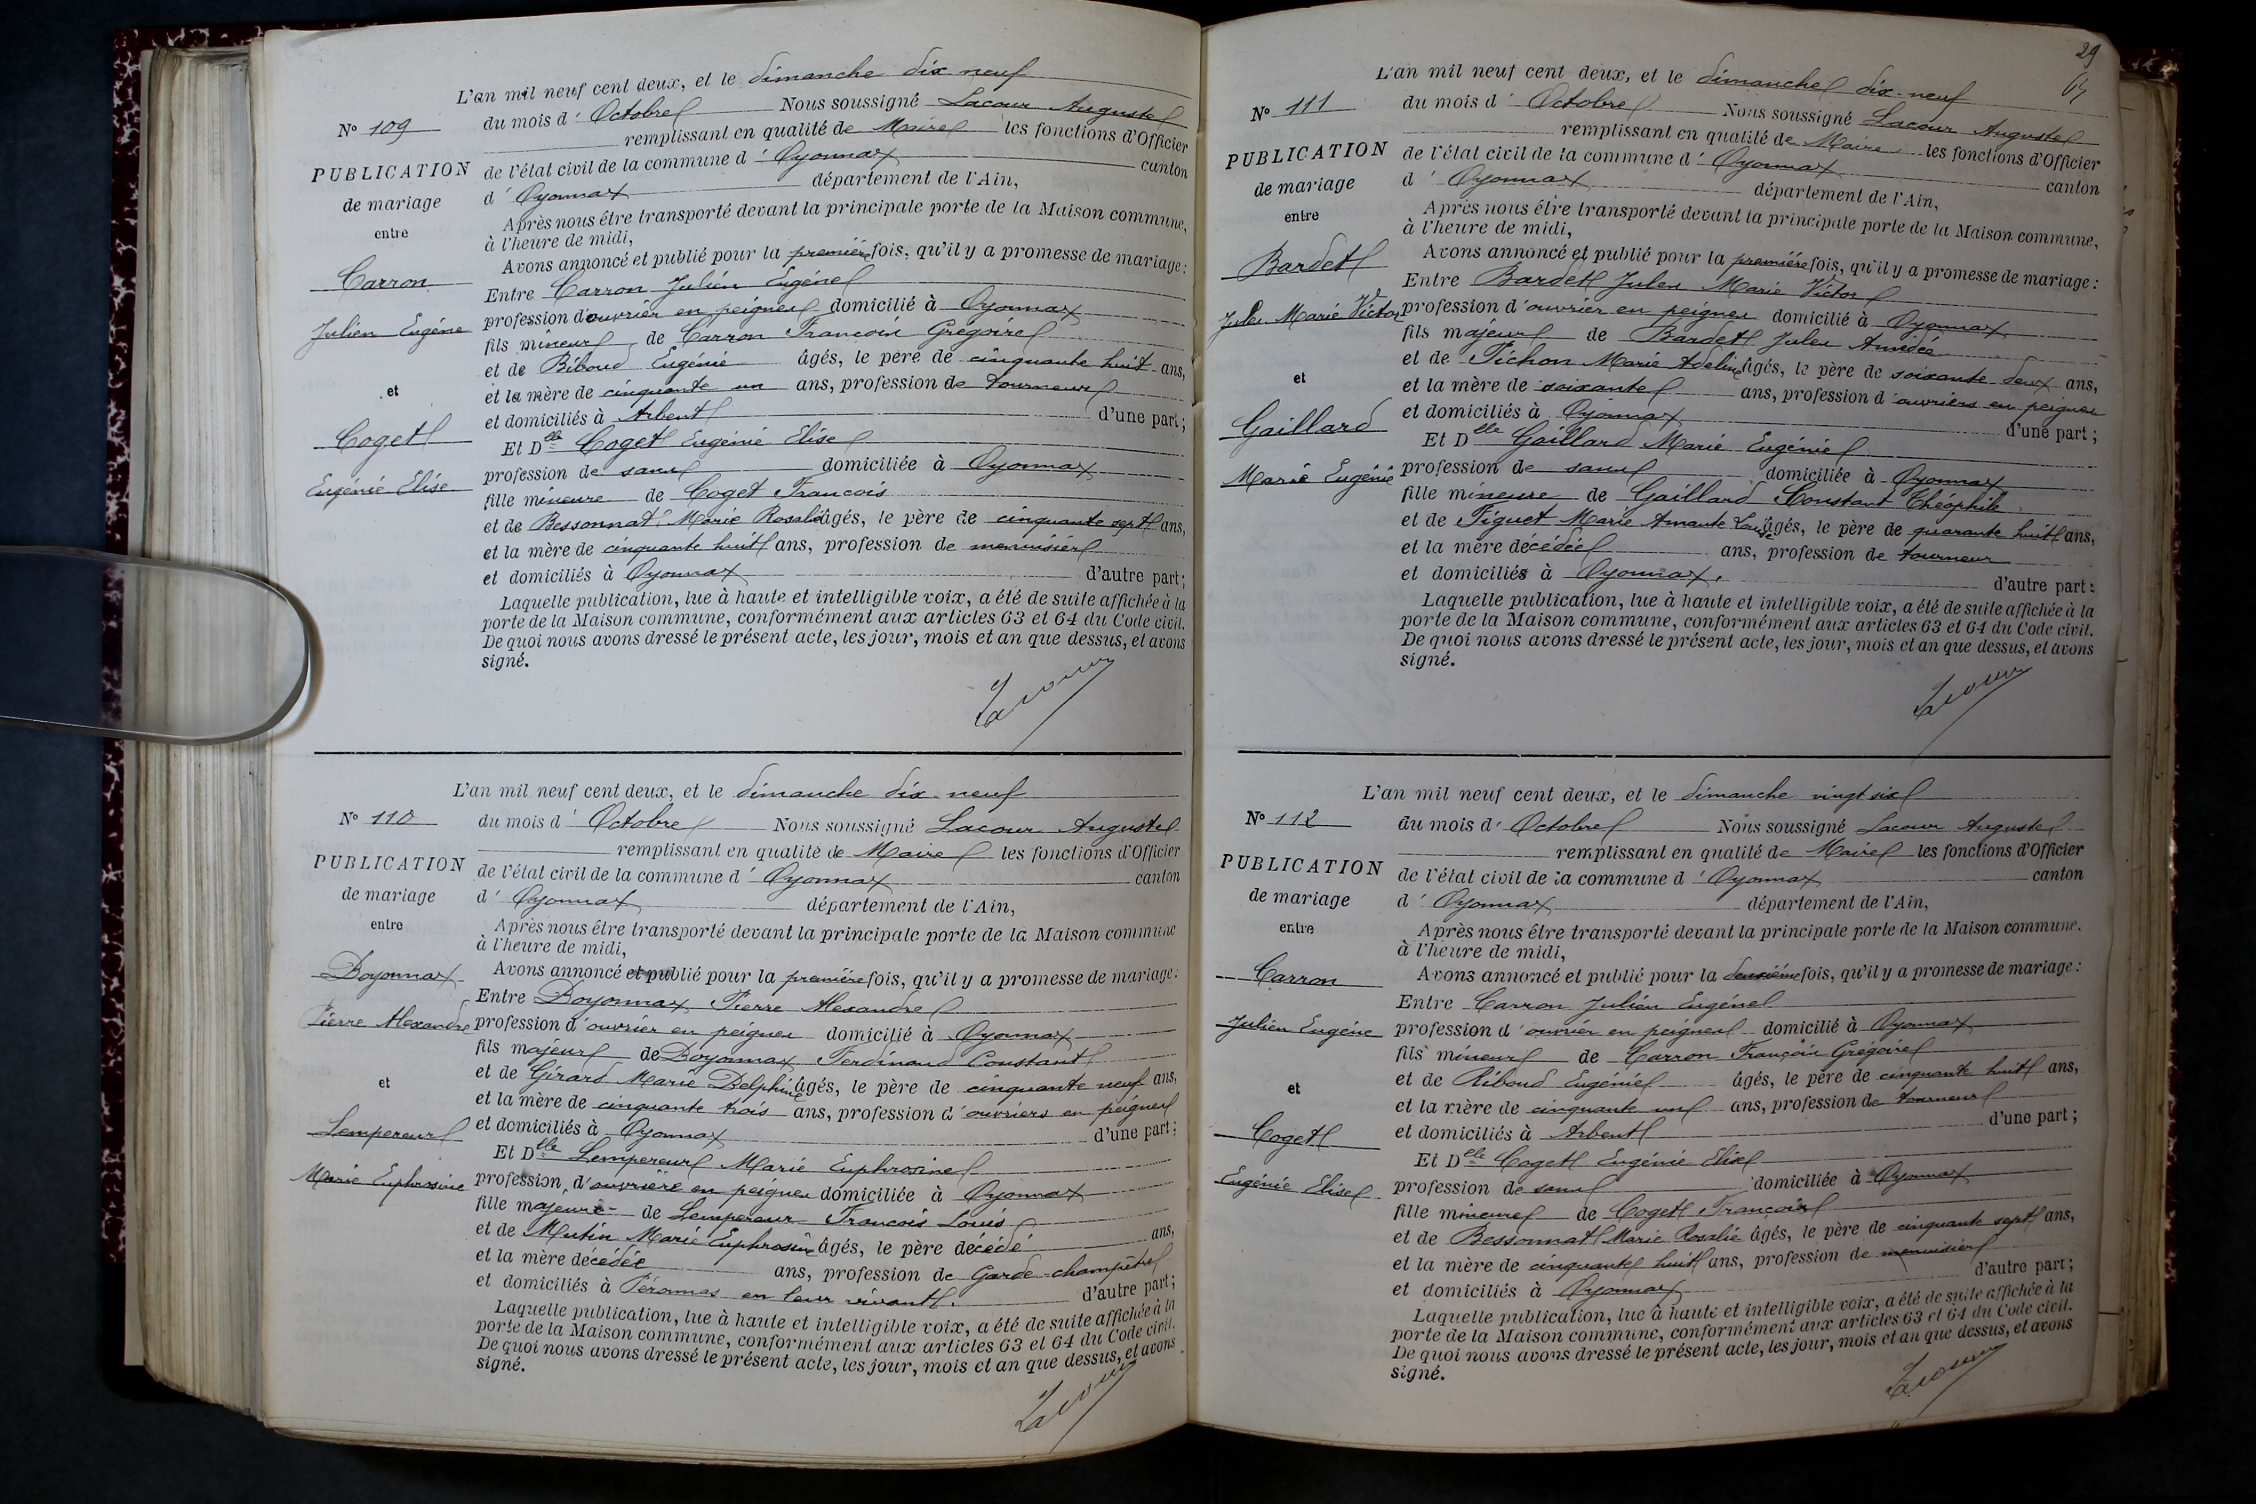 L'an mil neuf cent deux, et le dimanche dix neuf
N° 109
du mois d' Octobre Nous soussigné Lacour Auguste
remplissant en qualité de Maire les fonctions d'Officier
PUBLICATION
de l'état civil de la commune d' Oyonnax canton
de mariage
d' Oyonnax département de l'Ain,
entre
Après nous être transporté devant la principale porte de la Maison commune,
à l'heure de midi,
Avons annoncé et publié pour la première fois, qu'il y a promesse de mariage:
Carron
Entre Carron Julien Eugène
Julien Eugène
profession d'ouvrier en peignes domicilié à Oyonnax
fils mineur de Carron François Grégoire
et de Riboud Eugénie âgés, le père de cinquante huit ans,
et
et la mère de cinquante un ans, profession de tourneur
et domiciliés à Arbent d'une part;
Coget
Et Delle Coget Eugénie Elise
profession de sans domiciliée à Oyonnax
Eugénie Elise
fille mineure de Coget François
et de Bessonnat Marie Rosalie âgés, le père de cinquante sept ans,
et la mère de cinquante huit ans, profession de menuisier
et domiciliés à Oyonnax d'autre part;
Laquelle publication, lue à haute et intelligible voix, a été de suite affichée à la
porte de la Maison commune, conformément aux articles 63 et 64 du Code civil.
De quoi nous avons dressé le présent acte, les jour, mois et an que dessus, et avons
signé.
Lacour
L'an mil neuf cent deux, et le dimanche dix-neuf
N° 110
du mois d' Octobre Nous soussigné Lacour Auguste
remplissant en qualité de Maire les fonctions d'Officier
PUBLICATION
de l'état civil de la commune d' Oyonnax canton
de mariage
d' Oyonnax département de l'Ain,
entre
Après nous être transporté devant la principale porte de la Maison commune
à l'heure de midi,
Doyonnax
Avons annoncé et publié pour la première fois, qu'il y a promesse de mariage:
Entre Doyonnax Pierre Alexandre
Pierre Alexandre
profession d'ouvrier en peignes domicilié à Oyonnax
fils majeur de Doyonnax Ferdinand Constant
et de Girard Marie Delphine âgés, le père de cinquante neuf ans,
et
et la mère de cinquante trois ans, profession d'ouvriers en peignes
et domiciliés à Oyonnax d'une part;
Lempereur
Et Dlle Lempereur Marie Euphrosine
Marie Euphrosine
profession d'ouvrière en peignes domiciliée à Oyonnax
fille majeure de Lempereur François Louis
et de Mutin Marie Euphrosine âgés, le père décédé ans,
et la mère décédée ans, profession de Garde-champêtre
et domiciliés à Péronnas en leur vivant. d'autre part;
Laquelle publication, lue à haute et intelligible voix, a été de suite affichée à la
porte de la Maison commune, conformément aux articles 63 et 64 du Code civil.
De quoi nous avons dressé le présent acte, les jour, mois et an que dessus, et avons
signé.
Lacour
29
L'an mil neuf cent deux, et le dimanche dix-neuf
N° 111
du mois d' Octobre Nous soussigné Lacour Auguste
remplissant en qualité de Maire les fonctions d'Officier
PUBLICATION
de l'état civil de la commune d' Oyonnax canton
de mariage
d' Oyonnax département de l'Ain,
entre
Après nous être transporté devant la principale porte de la Maison commune,
à l'heure de midi,
Avons annoncé et publié pour la première fois, qu'il y a promesse de mariage:
Bardet
Entre Bardet Jules Marie Victor
Jules Marie Victor
profession d'ouvrier en peignes domicilié à Oyonnax
fils majeur de Bardet Jules Amédée
et de Pichon Marie Adeline âgés, le père de soixante-deux ans,
et
et la mère de soixante ans, profession d'ouvriers en peignes
et domiciliés à Oyonnax d'une part;
Gaillard
Et Delle Gaillard Marie Eugénie
Marie Eugénie
profession de sans domiciliée à Oyonnax
fille mineure de Gaillard Constant Théophile
et de Piguet Marie Amante Louise âgés, le père de quarante huit ans,
et la mère décédée ans, profession de tourneur
et domiciliés à Oyonnax. d'autre part;
Laquelle publication, lue à haute et intelligible voix, a été de suite affichée à la
porte de la Maison commune, conformément aux articles 63 et 64 du Code civil.
De quoi nous avons dressé le présent acte, les jour, mois et an que dessus, et avons
signé.
Lacour
L'an mil neuf cent deux, et le dimanche vingt six
N° 112
du mois d' Octobre Nous soussigné Lacour Auguste
remplissant en qualité de Maire les fonctions d'Officier
PUBLICATION
de l'état civil de la commune d' Oyonnax canton
de mariage
d' Oyonnax département de l'Ain,
entre
Après nous être transporté devant la principale porte de la Maison commune.
à l'heure de midi,
Carron
Avons annoncé et publié pour la deuxième fois, qu'il y a promesse de mariage:
Entre Carron Julien Eugène
Julien Eugène
profession d'ouvrier en peignes domicilié à Oyonnax
fils mineur de Carron François Grégoire
et de Riboud Eugénie âgés, le père de cinquante huit ans,
et
et la mère de cinquante un ans, profession de tourneur
et domiciliés à Arbent d'une part;
Coget
Et Delle Coget Eugénie Elise
Eugénie Elise
profession de sans domiciliée à Oyonnax
fille mineure de Coget François
et de Bessonnat Marie Rosalie âgés, le père de cinquante sept ans,
et la mère de cinquante huit ans, profession de menuisier
et domiciliés à Oyonnax d'autre part;
Laquelle publication, lue à haute et intelligible voix, a été de suite affichée à la
porte de la Maison commune, conformément aux articles 63 et 64 du Code civil.
De quoi nous avons dressé le présent acte, les jour, mois et an que dessus, et avons
signé.
Lacour